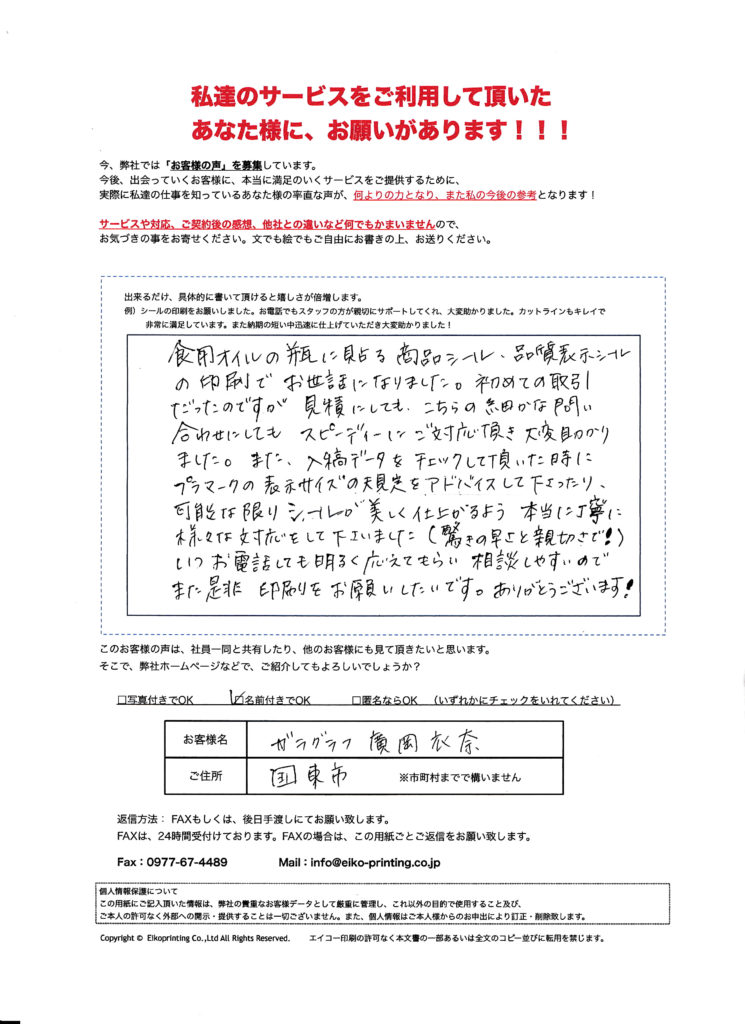 私達のサービスをご利用して頂いた
あなた様に、お願いがあります！！！
今、弊社では「お客様の声」を募集しています。
今後、出会っていくお客様に、本当に満足のいくサービスをご提供するために、
実際に私達の仕事を知っているあなた様の率直な声が、何よりの力となり、また私の今後の参考となります！
サービスや対応、ご契約後の感想、他社との違いなど何でもかまいませんので、
お気づきの事をお寄せください。文でも絵でもご自由にお書きの上、お送りください。
出来るだけ、具体的に書いて頂けると嬉しさが倍増します。
例）シールの印刷をお願いしました。お電話でもスタッフの方が親切にサポートしてくれ、大変助かりました。カットラインもキレイで
非常に満足しています。また納期の短い中迅速に仕上げていただき大変助かりました！
食用オイルの瓶に貼る商品シール、品質表示シール
の印刷でお世話になりました。初めての取引
だったのですが見積にしても、こちらの細かな問い
合わせにしてもスピーディーにご対応頂き大変助かり
ました。また、入稿データをチェックして頂いた時に
プラマークの表示サイズの規定をアドバイスして下さったり、
可能な限りシールが美しく仕上がるよう本当に丁寧に
様々な対応をして下さいました（驚きの早さと親切さで！）
いつお電話しても明るく応えてもらい相談しやすいので
また是非印刷をお願いしたいです。ありがとうございます！
このお客様の声は、社員一同と共有したり、他のお客様にも見て頂きたいと思います。
そこで、弊社ホームページなどで、ご紹介してもよろしいでしょうか？
□写真付きでOK ☑名前付きでOK □匿名ならOK （いずれかにチェックをいれてください）
お客様名 ガラグラフ 廣岡衣奈
ご住所 国東市 ※市町村までで構いません
返信方法： FAXもしくは、後日手渡しにてお願い致します。
FAXは、24時間受付けております。FAXの場合は、この用紙ごとご返信をお願い致します。
Fax：0977-67-4489 Mail：info@eiko-printing.co.jp
個人情報保護について
この用紙にご記入頂いた情報は、弊社の貴重なお客様データとして厳重に管理し、これ以外の目的で使用すること及び、
ご本人の許可なく外部への開示・提供することは一切ございません。また、個人情報はご本人様からのお申出により訂正・削除致します。
Copyright © Eikoprinting Co.,Ltd All Rights Reserved. エイコー印刷の許可なく本文書の一部あるいは全文のコピー並びに転用を禁じます。